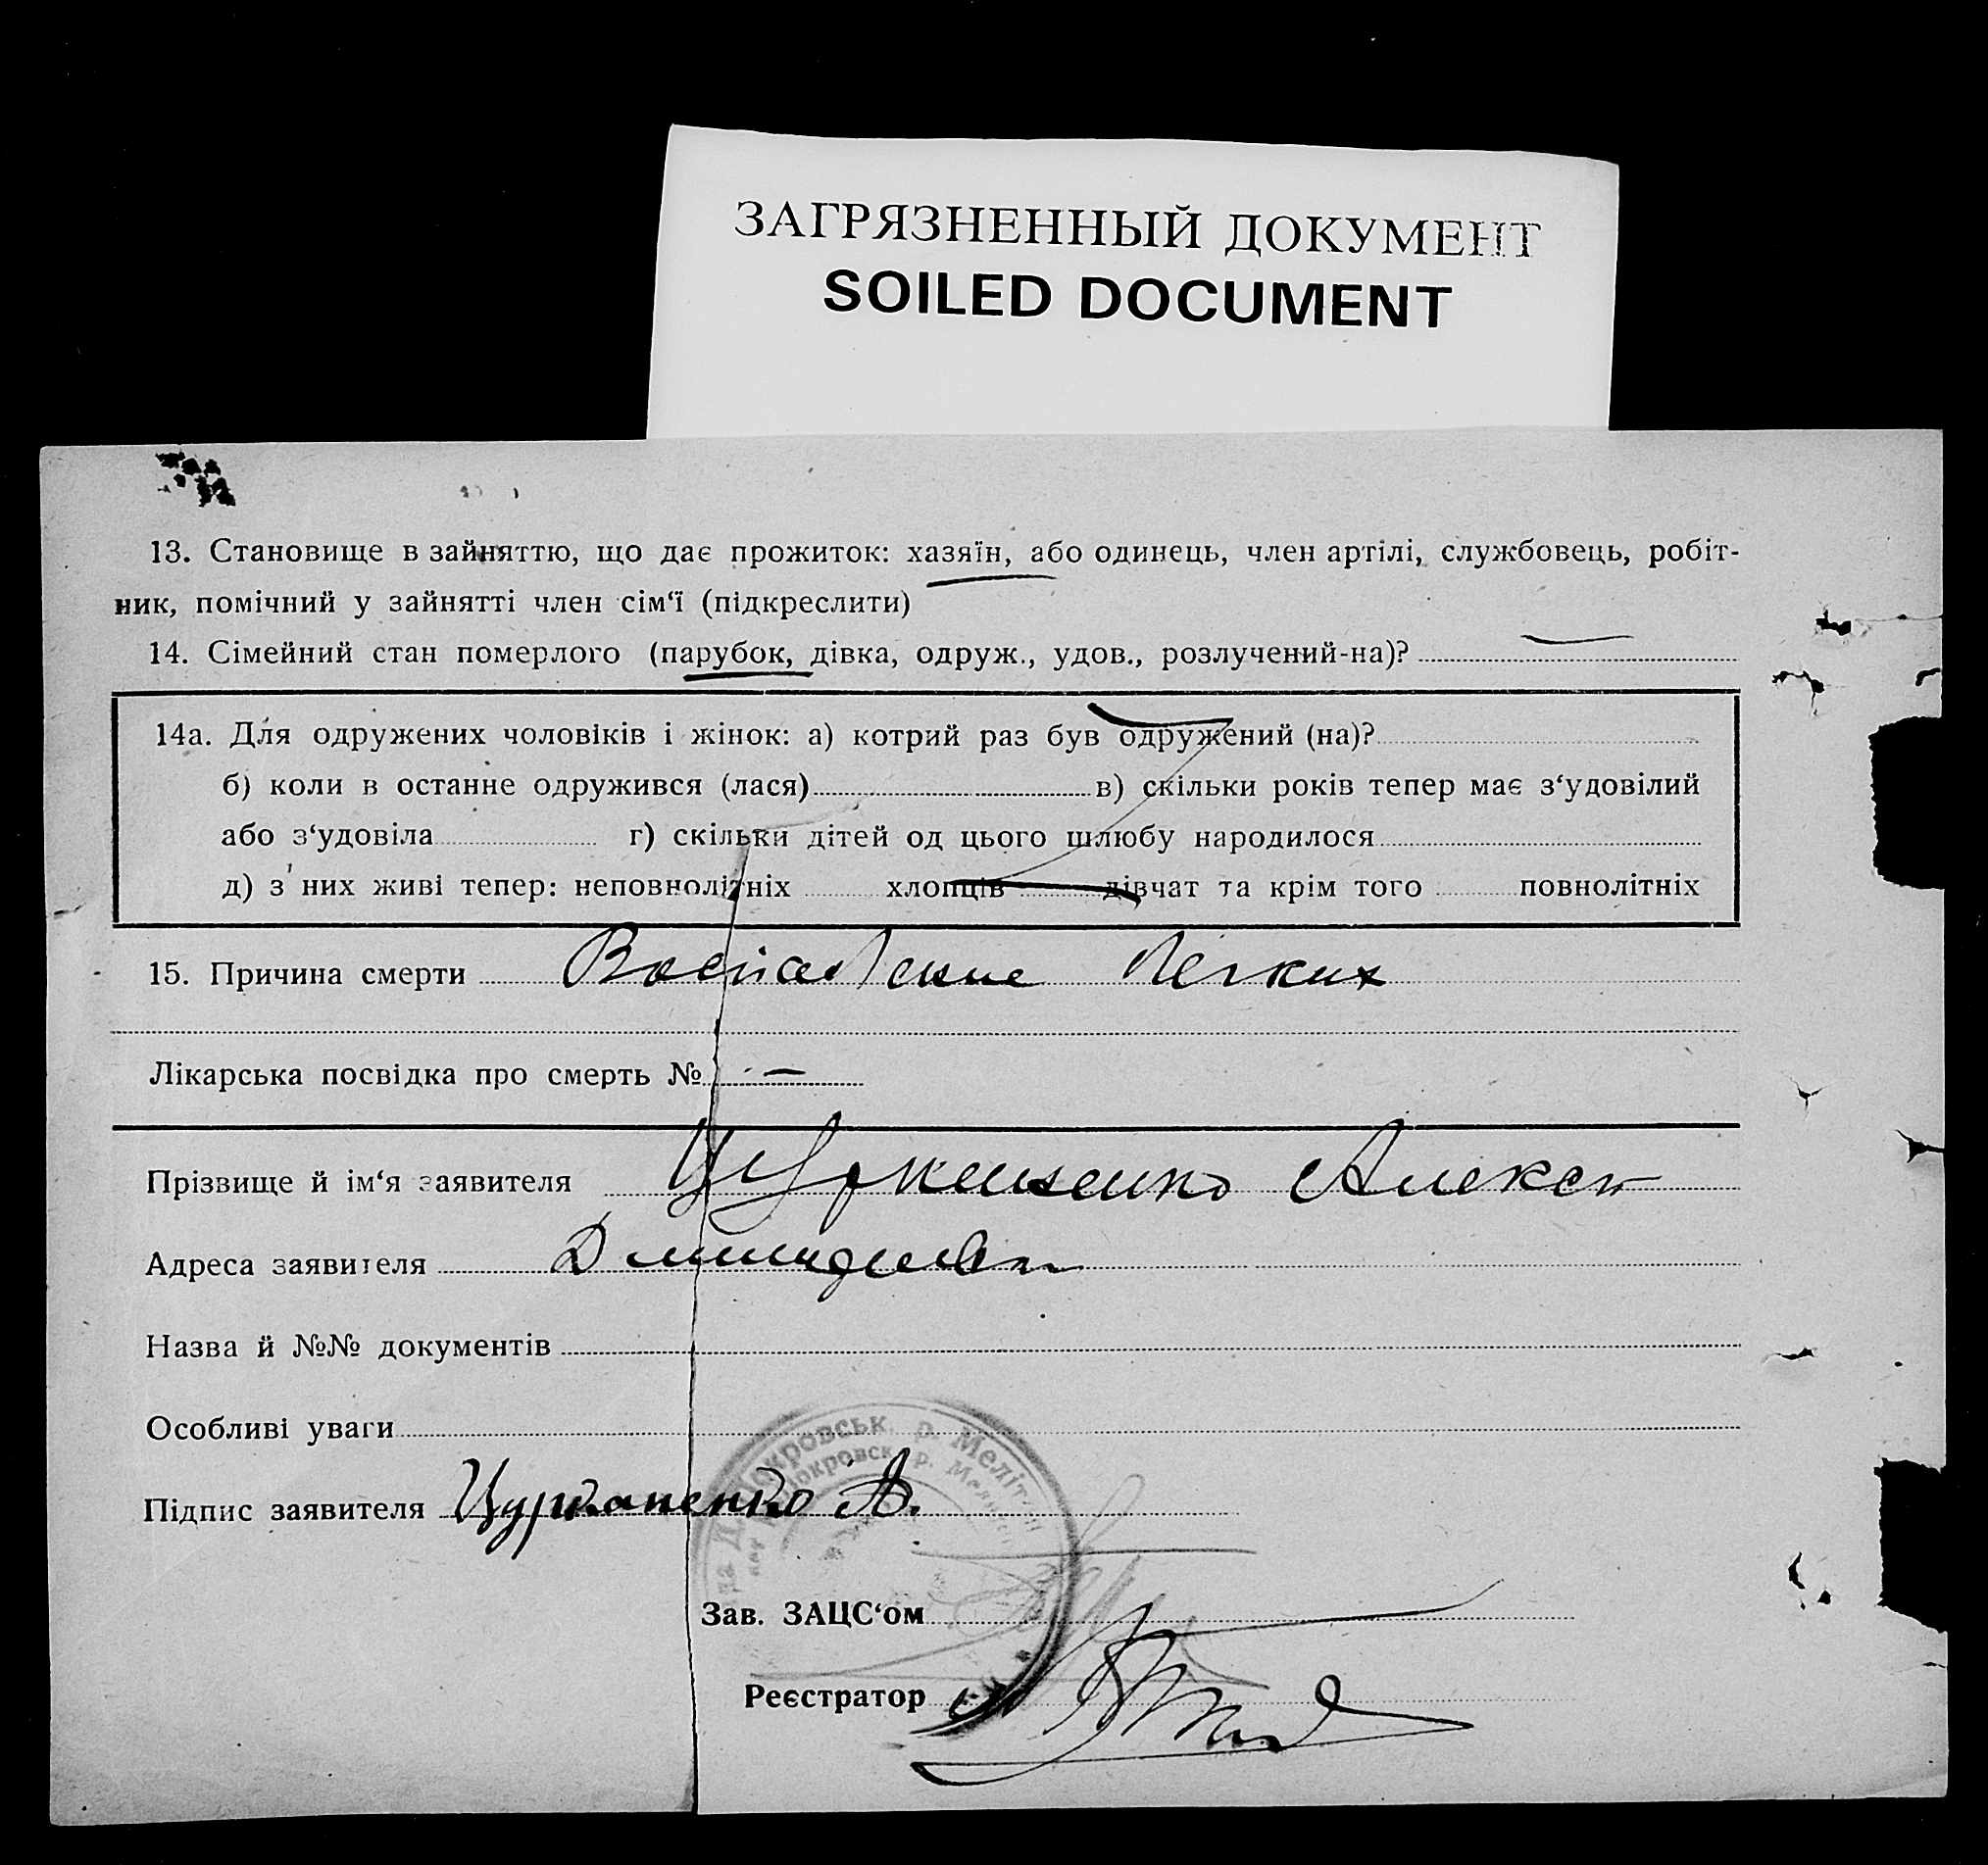 ЗАГРЯЗНЕННЫЙ ДОКУМЕНТ
SOILED DOCUMENT
13. Становище в зайняттю, що дає прожиток: хазяїн, або одинець, член артілі, службовець, робіт-
ник, помічний у зайнятті член сім‘ї (підкреслити)
14. Сімейний стан померлого (парубок, дівка, одруж., удов., розлучений-на)?
14а. Для одружених чоловіків і жінок: а) котрий раз був одружений (на)?
б) коли в останнє одружився (лася) в) скільки років тепер має з‘удовілий
або з‘удовіла г) скільки дітей од цього шлюбу народилося
д) з них живі тепер: неповнолітніх хлопців дівчат та крім того повнолітніх
15. Причина смерти Воспаление Легких
Лікарська посвідка про смерть № —
Прізвище й ім‘я заявителя Цурканенко Алексей
Адреса заявителя
Назва й №№ документів
Особливі уваги
Підпис заявителя Цурканенко А.
Покровськ. р. Меліт
Покровск р. Мелит
Зав. ЗАЦС‘ом
Реєстратор